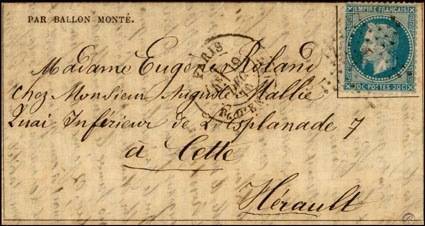 PAR BALLON MONTÉ.
EMPIRE FRANÇAIS
20 C POSTES 20 C
PARIS
Madame Eugène Roland
Chez Monsieur Auguste Vallié
Quai Inférieur de L'Esplanade 7
à Cette
Hérault